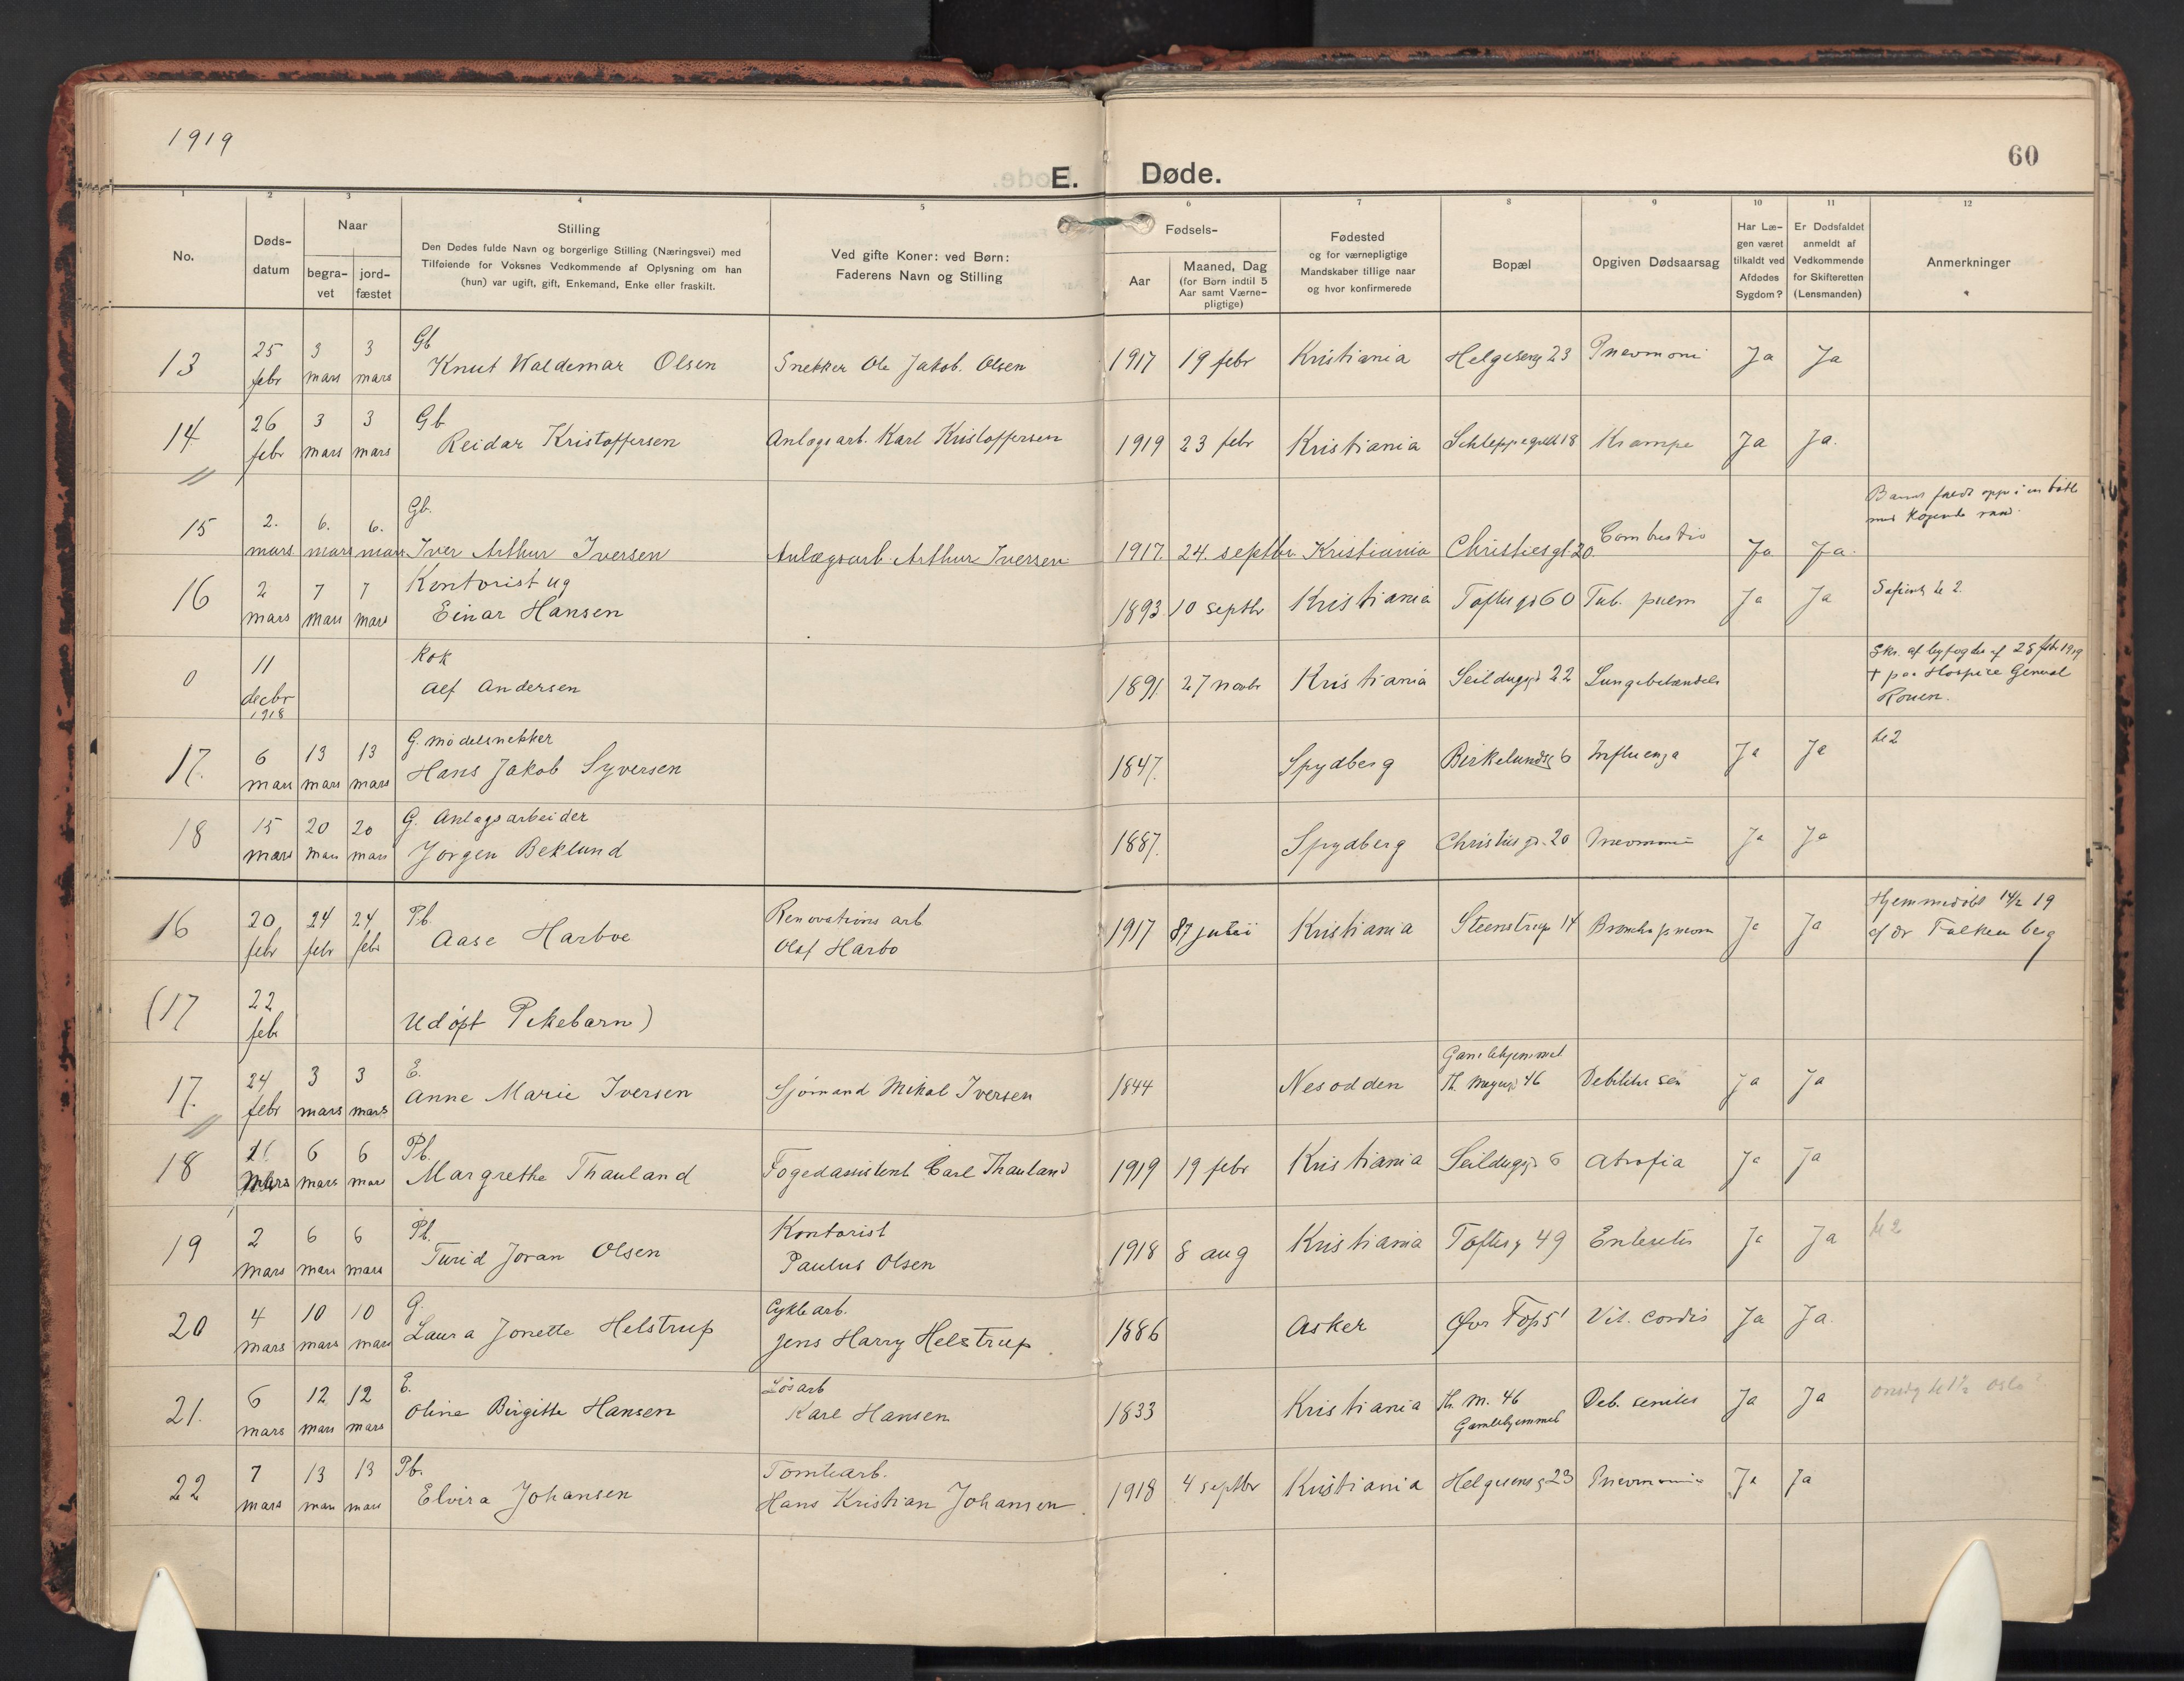 1919
60
E. Døde.
1 2 3 4 5 6 7 8 9 10 11 12
No.
Døds-
datum
Naar
begra-
vet
jord-
fæstet
Stilling
Den Dødes fulde Navn og borgerlige Stilling (Næringsvei) med
Tilføiende for Voksnes Vedkommende af Oplysning om han
(hun) var ugift, gift, Enkemand, Enke eller fraskilt.
Ved gifte Koner: ved Børn:
Faderens Navn og Stilling
Fødsels-
Aar
Maaned, Dag
(for Børn indtil 5
Aar samt Værne-
pligtige)
Fødested
og for værnepligtige
Mandskaber tillige naar
og hvor konfirmerede
Bopæl
Opgiven Dødsaarsag
Har Læ-
gen været
tilkaldt ved
Afdødes
Sygdom?
Er Dødsfaldet
anmeldt af
Vedkommende
for Skifteretten
(Lensmanden)
Anmerkninger
13 25 febr 3 mars 3 mars Gb Knut Waldemar Olsen Snekker Ole Jakob. Olsen 1917 19 febr Kristiania Helgesensg 23 Pneumoni Ja Ja
14 26 febr 3 mars 3 mars Gb Reidar Kristoffersen Anlægsarb. Karl Kristoffersen 1919 23 febr Kristiania Schleppegrellsg 18 Krampe Ja Ja.
15 2. mars 6. mars 6. mars Gb. Iver Arthur Iversen Anlægsarb. Arthur Iversen 1917. 24. septbr Kristiania Christiesgt. 20 Combustio Ja Ja. Barnet faldt opp i en bøtte
med kogende vand.
16 2 mars 7 mars 7 mars Kontorist ug Einar Hansen 1893 10 septbr Kristiania Toftesgd 60 Tub. pulm Ja Ja
0 11 decbr 1918 Kok Alf Andersen 1891 27 novbr Kristiania Seildugsgd 22 Lungebetændelse Skr. af byfogden af 25 febr 1919
+ paa Hospice General
Rouen.
17. 6 mars 13 mars 13 mars G. modelsnekker Hans Jakob Syversen 1847. Spydberg Birkelundsg 6 Influenza Ja Ja kl 2
18 15 mars 20 mars 20 mars G. Anlægsarbeider Jørgen Beklund 1887. Spydberg Christiesgd. 20 Pneumoni Ja Ja
16 20 febr 24 febr 24 febr Pb. Aase Harboe Renovations arb Olaf Harbo 1917 juli Kristiania Steenstrupsg 14 Bronchopneum Ja Ja Hjemmedøbt 14/2 19
af dr Falkenberg
(17 22 feb Udøpt Pikebarn)
17. 24 febr 3 mars 3 mars E. Anne Marie Iversen Sjømand Mikal Iversen 1844 Nesodden Gamlehjemmet Th. Meyersgd 46 Debilitas sen Ja Ja
18 1 mars 6 mars 6 mars Pb. Margrethe Thauland Fogedassistent Carl Thauland 1919 19 febr Kristiania Seildugsgd 6 Atrofia Ja Ja
19 2 mars 6 mars 6 mars Pb. Turid Joran Olsen Kontorist Paulus Olsen 1918 8 aug Kristiania Toftesg 49 Enteritis Ja Ja kl 2
20 4 mars 10 mars 10 mars G. Laura Jonette Helstrup Cyklearb. Jens Harry Helstrup 1886 Asker Øvr Foss 1 Vit. cordis Ja Ja.
21. 6 mars 12 mars 12 mars E. Oline Birgitte Hansen Løsarb Karl Hansen 1833 Kristiania Th. M. 46 Gamlehjemmet Deb. senilis Ja Ja
22 7 mars 13 mars 13 mars Pb. Elvira Johansen Tomtearb. Hans Kristian Johansen 1918 4 septbr Kristiania Helgesensg 23 Pneumonia Ja Ja